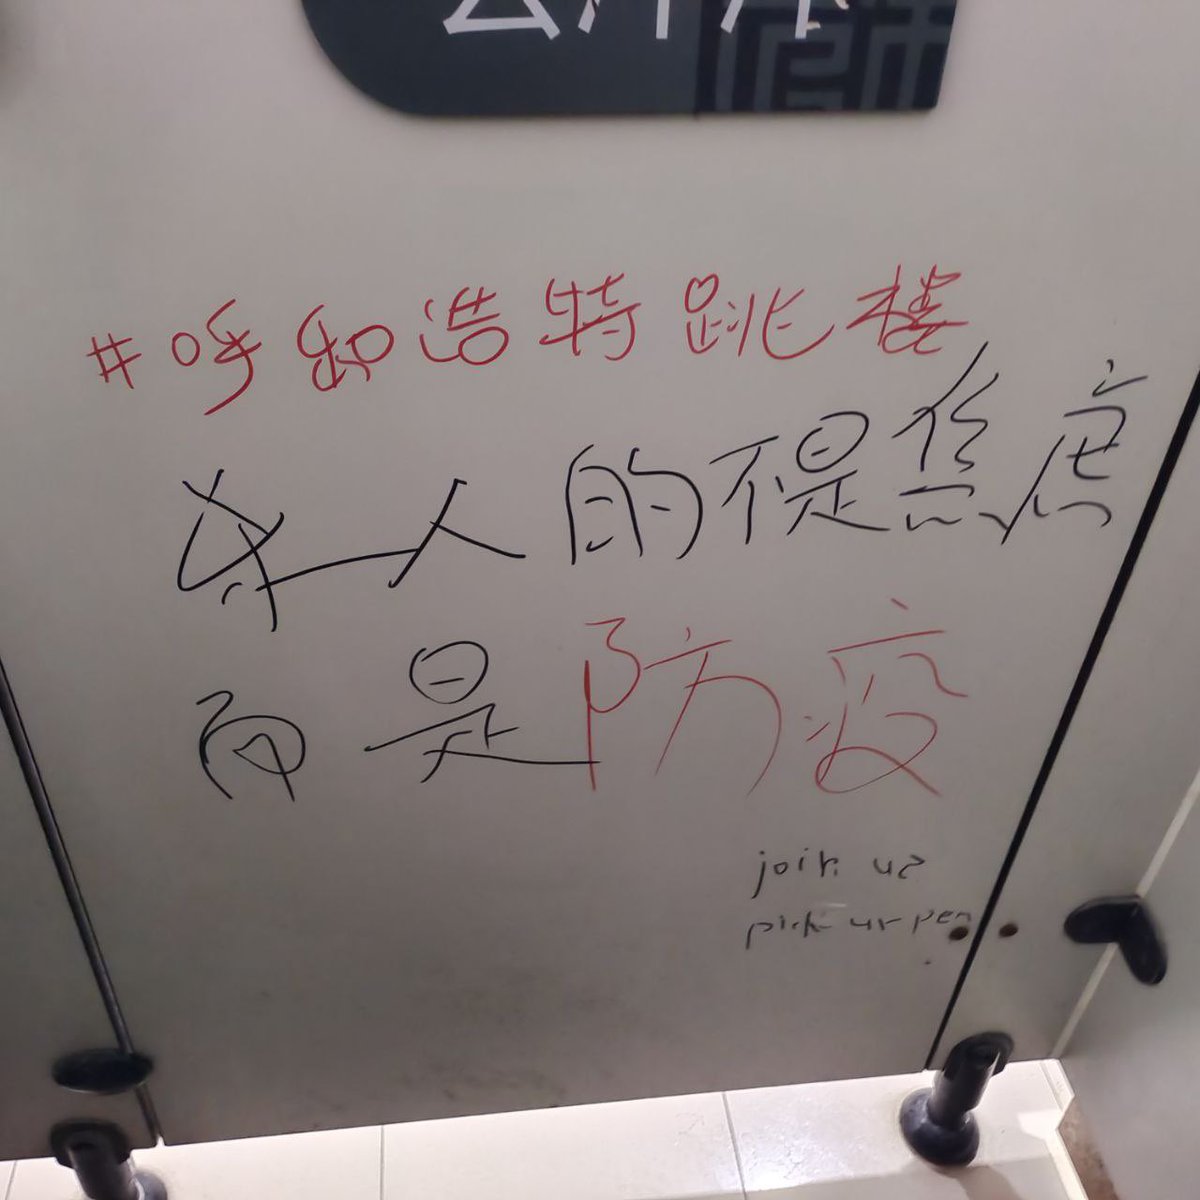 #呼和浩特跳楼
杀人的不是焦虑
而是防疫
join us
pick ur pen